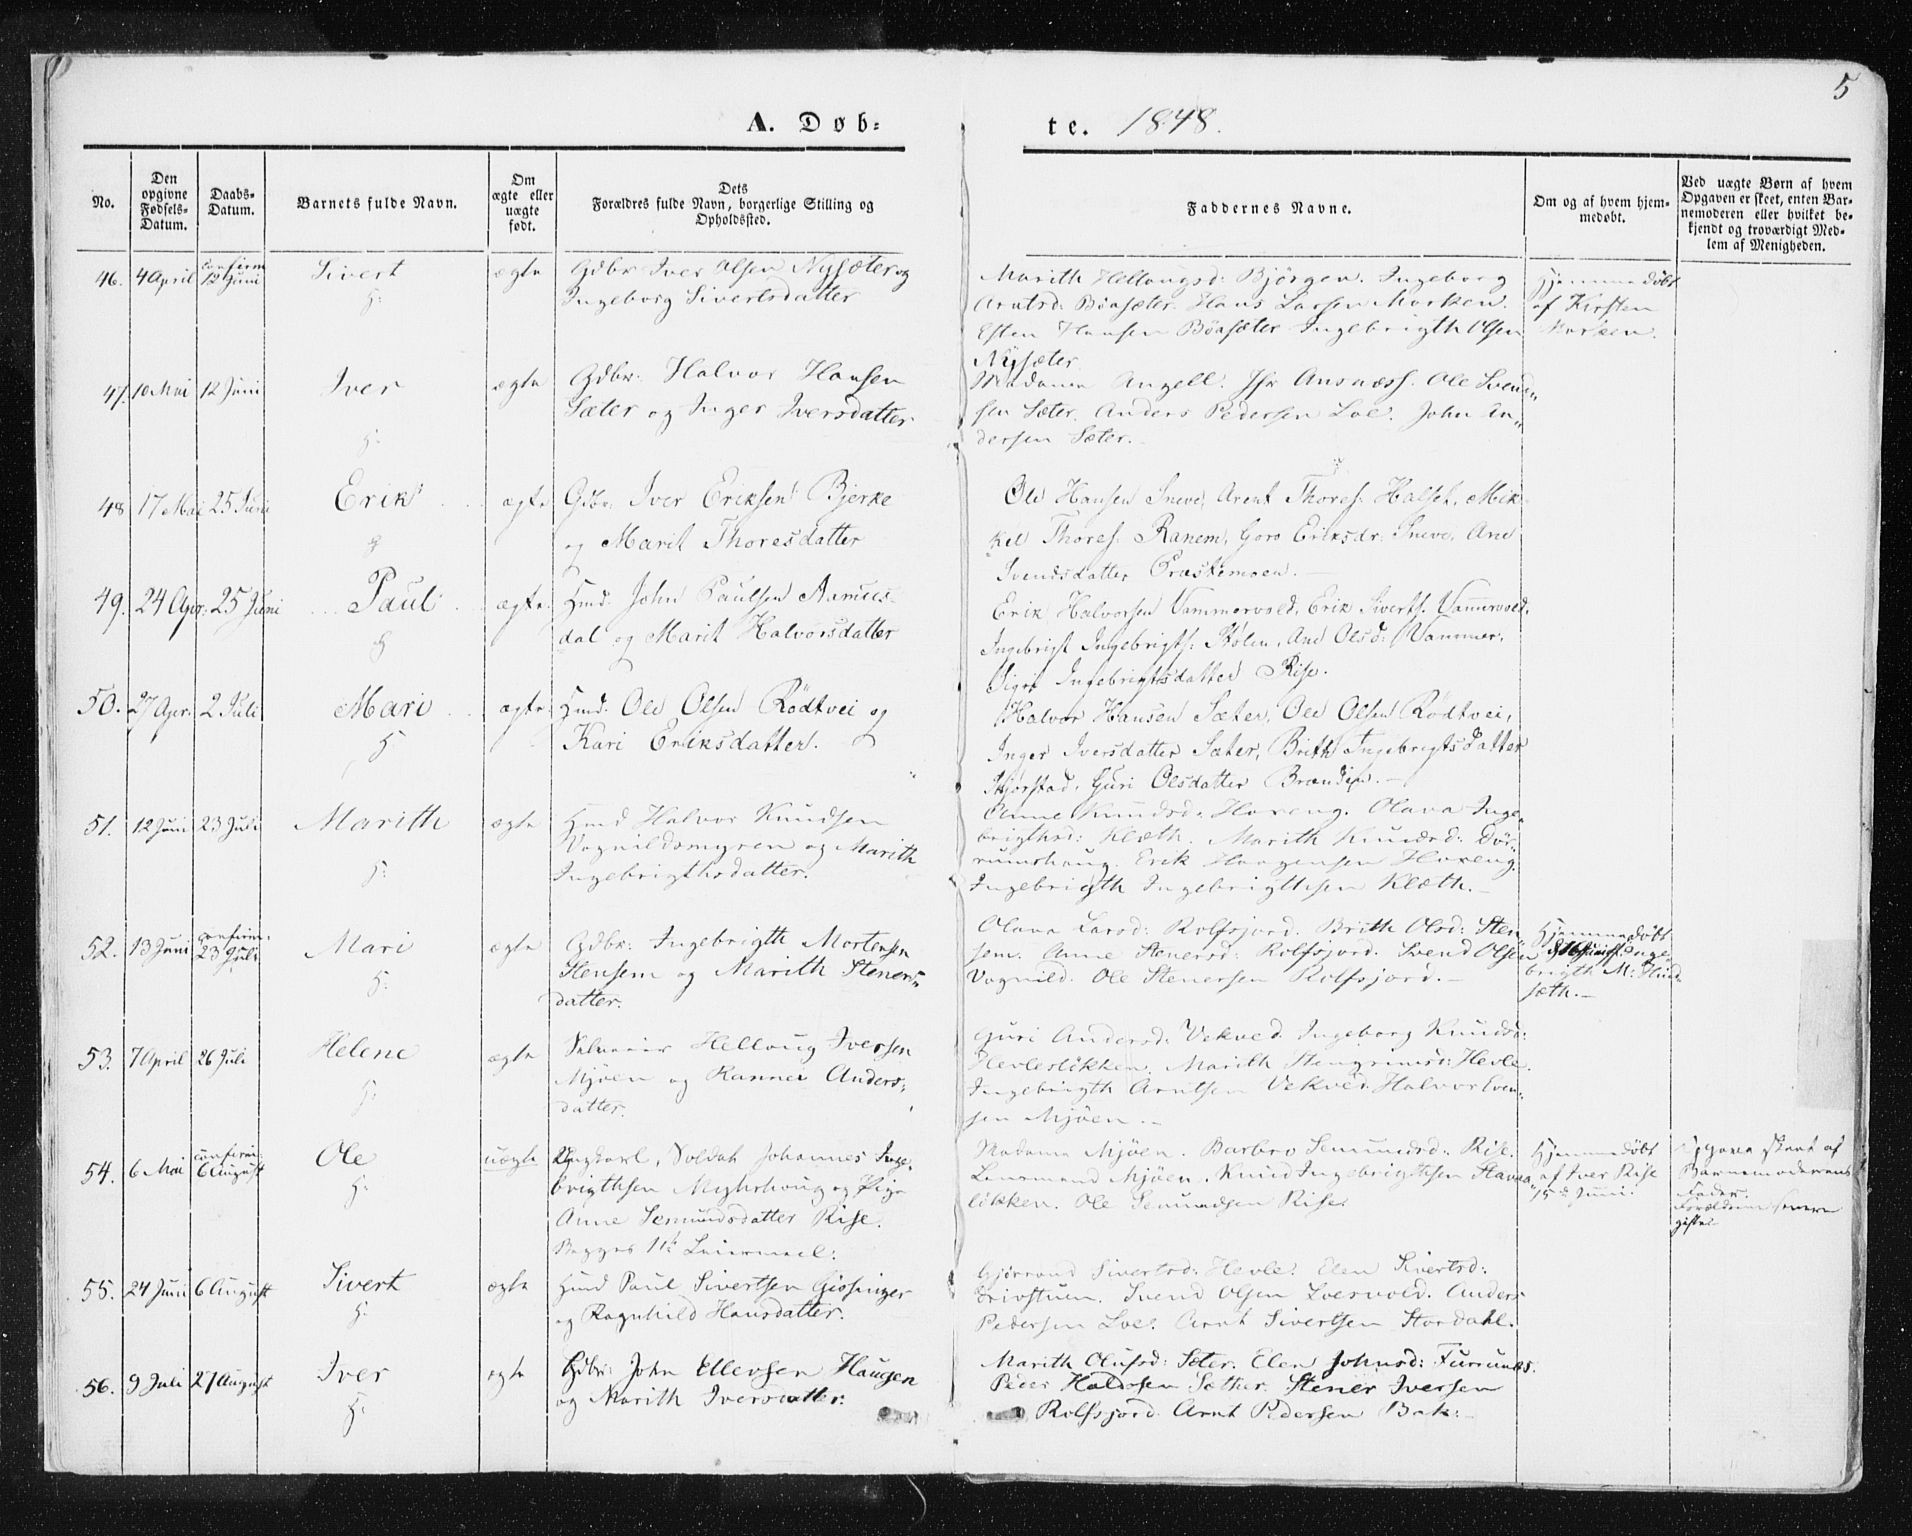 5
A. Døb- te. 1848.
No.
Den opgivne Fødsels-Datum.
Daabs-Datum.
Barnets fulde Navn.
Om ægte eller uægte født.
Dets Forældres fulde Navn, borgerlige Stilling og Opholdssted.
Faddernes Navne.
Om og af hvem hjemmedøbt.
Ved uægte Børn af hvem Opgaven er skeet, enten Barnemoderen eller hvilket bekjendt og troværdigt Medlem af Menigheden.
46. 4 April confirm 12 Juni Sivert ægte Gdbr Iver Olsen Nysæter og
Ingeborg Sivertsdatter
Marith Hellougsd: Bjørgen. Ingeborg
Arntsd: Böasæter. Hans Larsen Morken.
Esten Hansen Böasæter Ingebrigth Olsen
Nysæter
Hjemmedöbt
af Kirsten
Morken.
47. 10 Mai 12 Juni Iver ægte Gdbr: Halvor Hansen
Sæter og Inger Iversdatter
Madame Angell. Jfr Ansnæss. Ole Svend-
sen Sæter. Anders Pedersen Loe. John An-
dersen Sæter.
48 17 Mai 25 Juni Erik ægte Gdbr. Iver Eriksen Bjerke
og Marit Thoresdatter
Ole Hansen Sneve, Arent Thores: Halset, Mik-
kel Thores: Ranem, Goro Eriksdr: Sneve, Ane
Svendsdatter
49. 24 Apr: 25 Juni Paul ægte Hmd. John Paulsen Aamus-
dal og Marit Halvorsdatter
Erik Halvorsen Vammervold, Erik Siverts. Vammervold,
Ingebrigt Ingebrigts: Stölen, Ane Olsd: Vammer,
Sigri Ingebrigtsdatter Rise.
50. 27 Apr: 2 Juli Mari ægte Hmd. Ole Olsen Rödtvei og
Kari Eriksdatter.
Halvor Hansen Sæter, Ole Olsen Rödtvei,
Inger Iversdatter Sæter, Brith Ingebrigtsdatter
Skjørstad, Guri Olsdatter
51. 12 Juni 23 Juli Marith ægte Hmd Halvor Knudsen
Vognildsmyren og Marith
Ingebrigthsdatter.
Anne Knudsd: Horeng. Olava Inge-
brigthsd: Klæth. Marith Knudsd: Dör-
rumshaug. Erik Haagensen Horeng.
Ingebrigth Ingebrigthsen Klæth.
52. 13 Juni confirm. 23 Juli Mari ægte Gdbr: Ingebrigth Mortensen
Stensem og Marith Steners-
datter.
Olava Larsd: Rolfsjord. Brith Olsd: Sten-
sem. Anne Stenersd: Rolfsjord. Svend Olsen
Vognild. Ole Stenersen Rolfsjord.
Hjemmedöbt
Inge-
brigth M:
sæth.
53. 7 April 26 Juli Helene ægte Selveier Helloug Iversen
Mjöen og Ranner Anders-
datter.
Guri Andersd: Vekved. Ingeborg Knudsd:
Hevleslökken. Marith Stengrimsd: Hevle.
Ingebrigth Arntsen Vekved. Halvor Even-
sen Mjöen.
54. 6 Mai confirm. 6 August Ole uægte Ungkarl, Soldat Johannes Inge-
brigthsen Myhrhoug og Pige
Anne Semundsdatter Rise.
Begges 1ste Leiermaal.
Madame Mjöen. Barbro Semundsd: Rise.
Lensmand Mjöen. Knud Ingebrigthsen Stavaa-
lökken. Ole Semundsen Rise.
Hjemmedöbt
af Iver Rise
15de Juni.
Opgaven skeet af
Barnemoderens
Fader.
Forældrene senere
gifte.
55. 24 Juni 6 August Sivert ægte Hmd Paul Sivertsen Gissinger
og Ragnhild Hansdatter.
Gjörrond Sivertsd: Hevle. Elen Sivertsd:
Drivstuen. Svend Olsen Loevold. Anders
Pedersen Loe. Arnt Sivertsen Stordahl.
56. 9 Juli 27 August Iver ægte Gdbr: John Ellevsen Haugen
og Marith Iversdatter.
Marith Olufsd: Sæter. Elen Johnsd: Furrunæs.
Peder Haldosen Sæther. Stener Iversen
Rolfsjord Arnt Pedersen Bak: